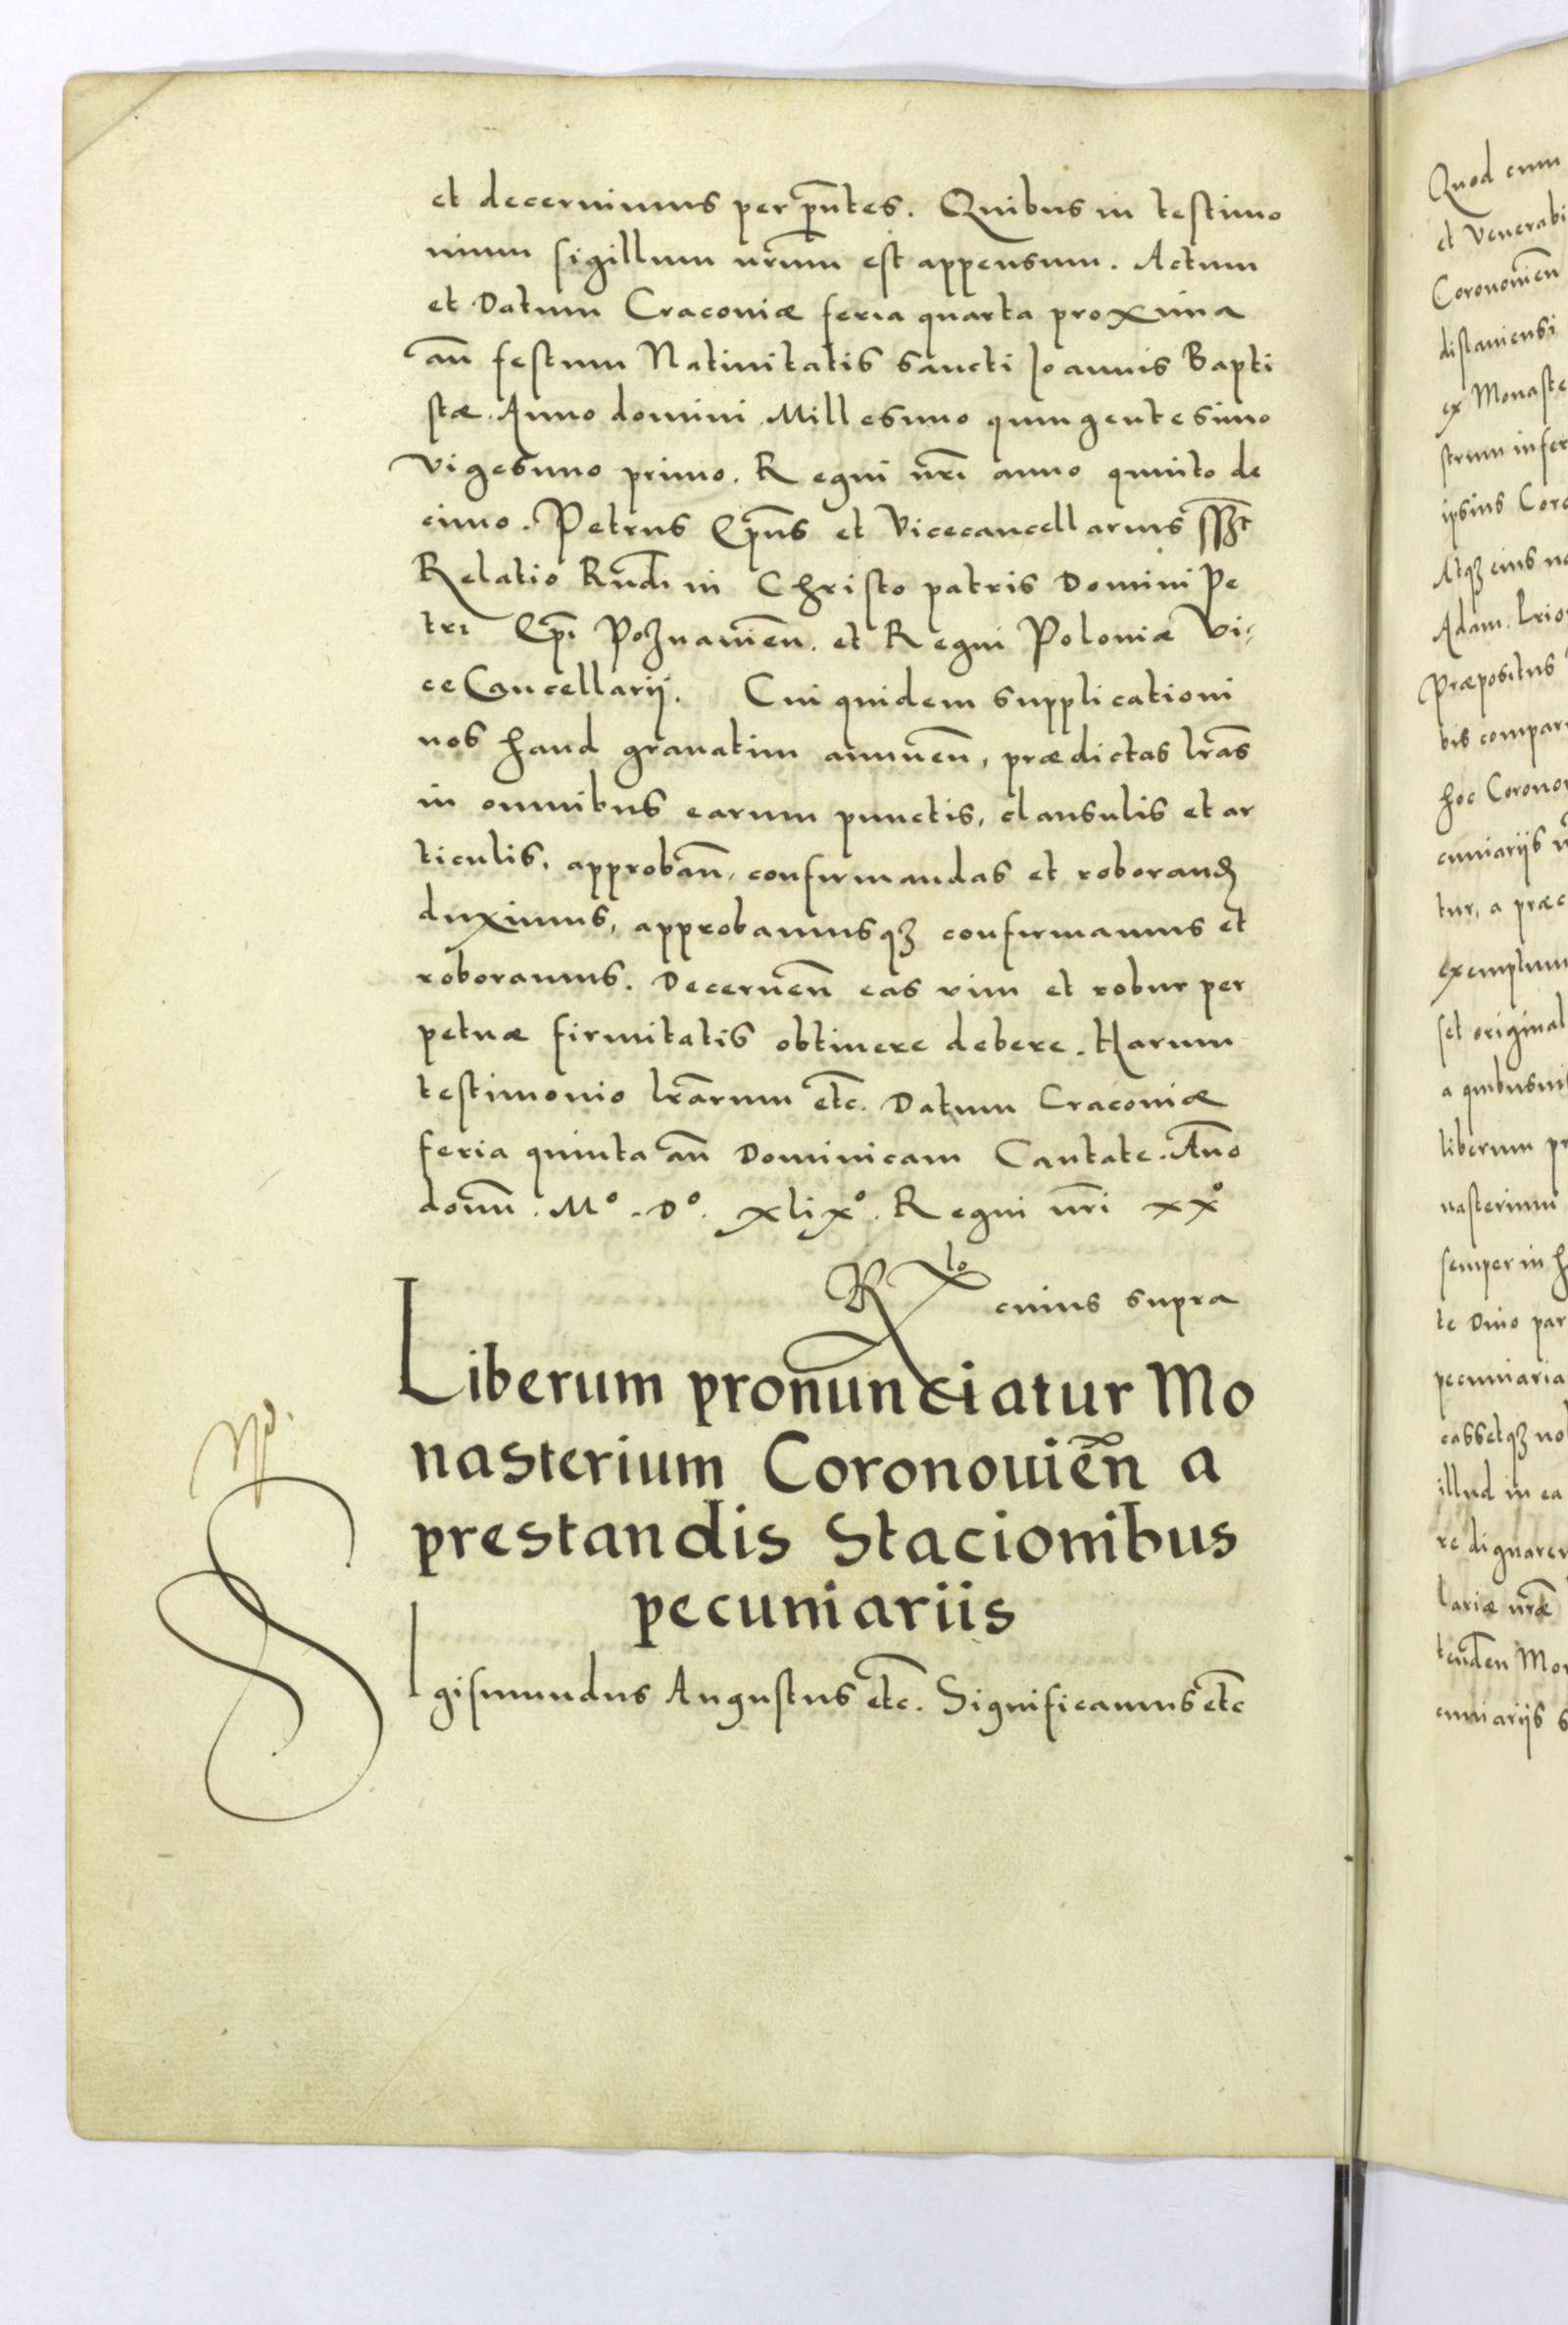 et decernimus per pn̄tes. Quibus in testimo
nium sigillum nr̄um est appensum. Actum
et Datum Cracoviæ feria quarta proxima
an̄ festum Nativitatis sancti Ioannis Bapti
stæ. Anno domini Millesimo quingentesimo
vigesimo primo. Regni nr̄i anno quinto de
cimo. Petrus Ep̄us et Vicecancellarius
Relatio Rn̄di in Christo patris Domini Pe
tri Ep̄i Poznanien̄. et Regni Poloniæ Vi-
ceCancellarij. Cui quidem supplicationi
nos haud gravatim annuen̄, prædictas lr̄as
in omnibus earum punctis, clausulis et ar
ticulis, approban̄, confirmandas et roborand
duximus, approbamusqꝫ confirmamus et
roboramus. Decernen̄ eas vim et robur per
petuæ firmitatis obtinere debere. Harum
testimonio lr̄arum etc̄. Datum Cracoviæ
feria quinta an̄ Dominicam Cantate. An̄o
domn̄. Mº. Dº. xlixº. Regni nr̄i xxº
Rlo cuius supra
Liberum pronunciatur Mo
nasterium Coronouien̄ a
prestandis Stacionibus
pecuniariis
SIgismundus Augustus etc̄. Significamus etc̄
Quod cum
et Venerabi
Coronouien̄
distaniensi
ex Monaste
strum infer
ipsius Coro
Atqꝫ eius no
Adam
Præpositus
bis compar
hoc Corono
cuniariis
tur, a præc
exemptum
set original
a quibusuis
liberum pr
nasterium
semper in h
te Dn̄o par
pecuniaria
cassetqꝫ no
illud in ea
re dignarer
lariæ nr̄æ
Mon
cuniariis s